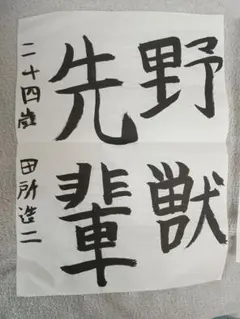 野獣
先輩
二十四歳 田所造二